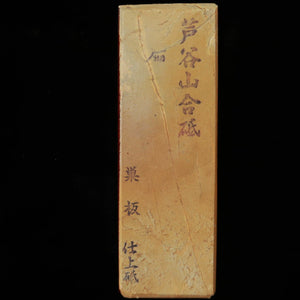 芦谷山合砥
巣板
仕上砥